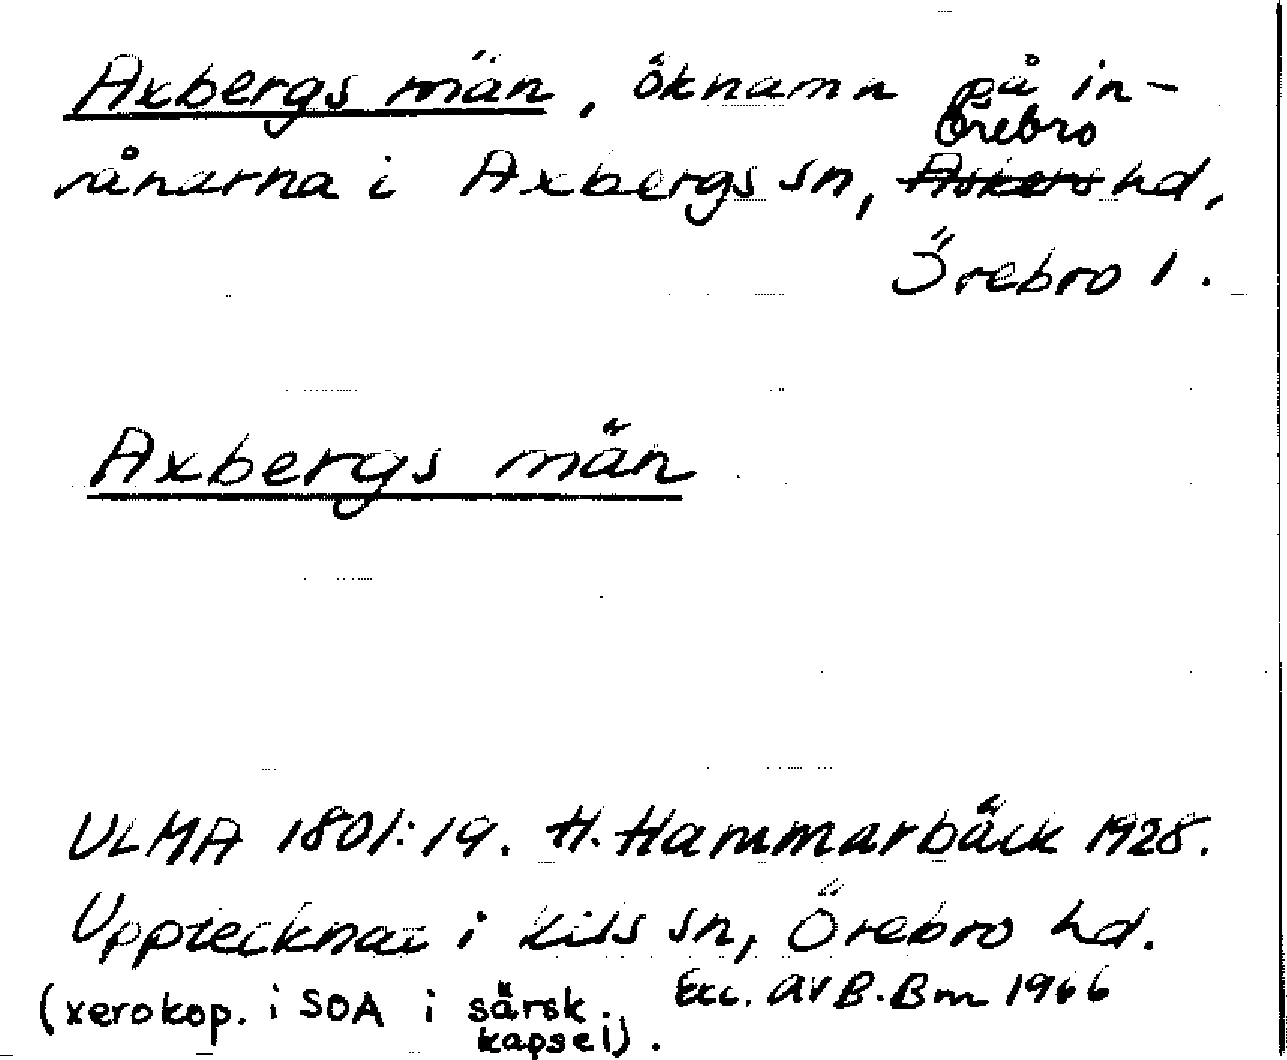 Axbergs män, öknamn på in-
vånarna i Axbergs sn, Örebro ~~Askers~~ hd,
Örebro l.
Axbergs män
ULMA 1801:19. H. Hammarbäck 1928.
Upptecknat i Kils sn, Örebro hd.
Exc. av B. Bm 1966
(xerokop. i SOA i särsk.
kapsel).